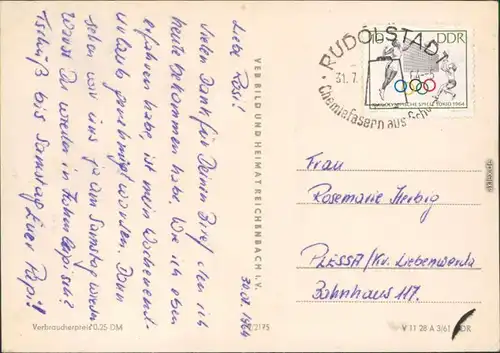 Liebe Rosi!
Vielen Dank für Deinen Brief den ich
heute bekommen habe. Wie ich eben
erfahren habe ist mein Wochenend-
urlaub genehmigt worden. Dann
sehen wir uns ja am Samstag wenn
Wirst Du wieder in Hohenleipisch?
Tschüß bis Samstag Euer Papi!
30.07.1964
VEB BILD UND HEIMAT REICHENBACH I. V.
Verbraucherpreis 0.25 DM
2175
V 11 28 A 3/61 DDR
RUDOLSTADT
31.7.
Chemiefasern aus Schw
10 DDR
OLYMPISCHE SPIELE TOKIO 1964
Frau
Rosemarie Herbig
PLESSA/Kr. Liebenwerda
Bahnhaus 117.